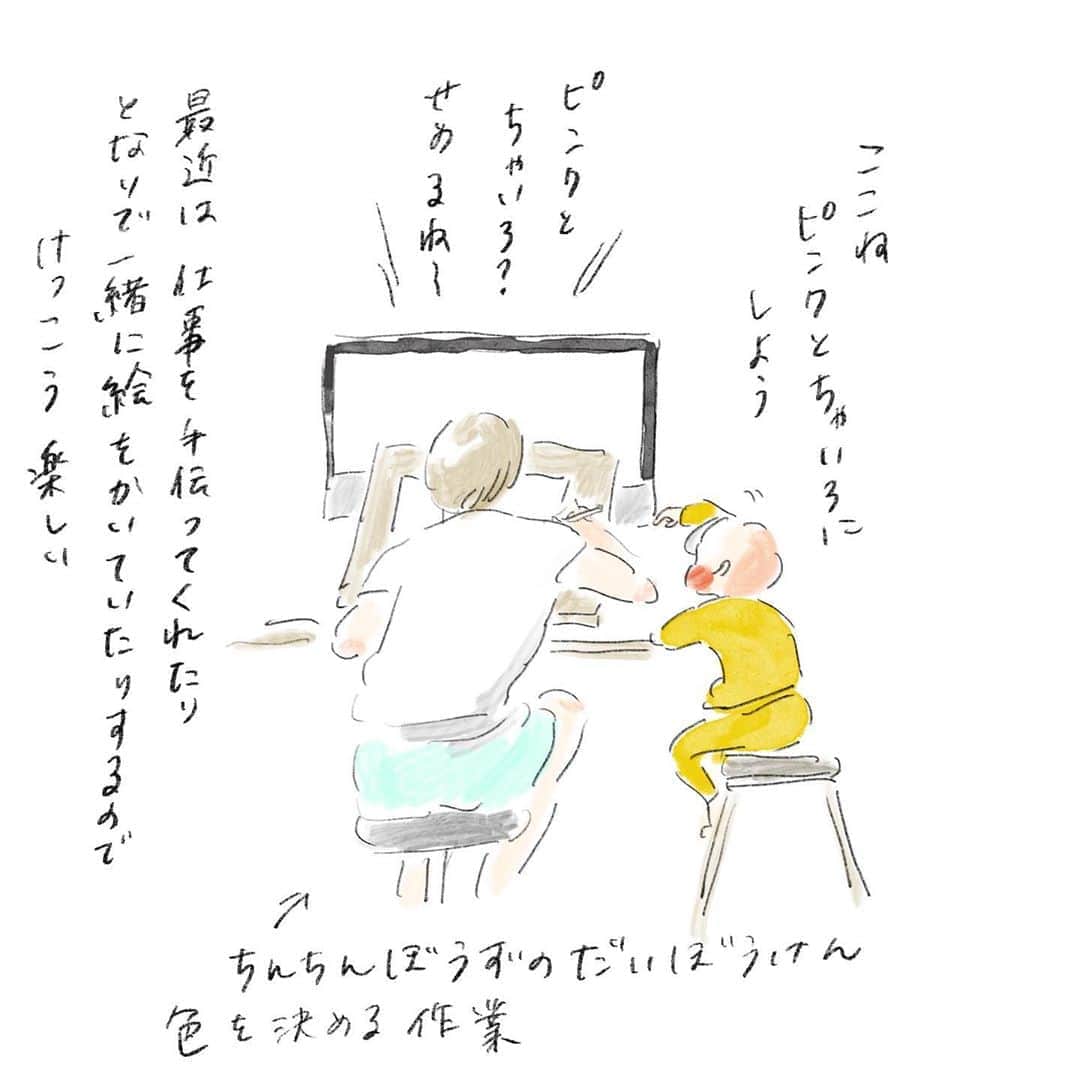 ここね
ピンクとちゃいろに
しよう
ピンクと
ちゃいろ?
せめるね〜
最近は 仕事を手伝ってくれたり
となりで一緒に絵をかいていたりするので
けっこう楽しい
ちんちんぼうずのだいぼうけん
色を決める作業